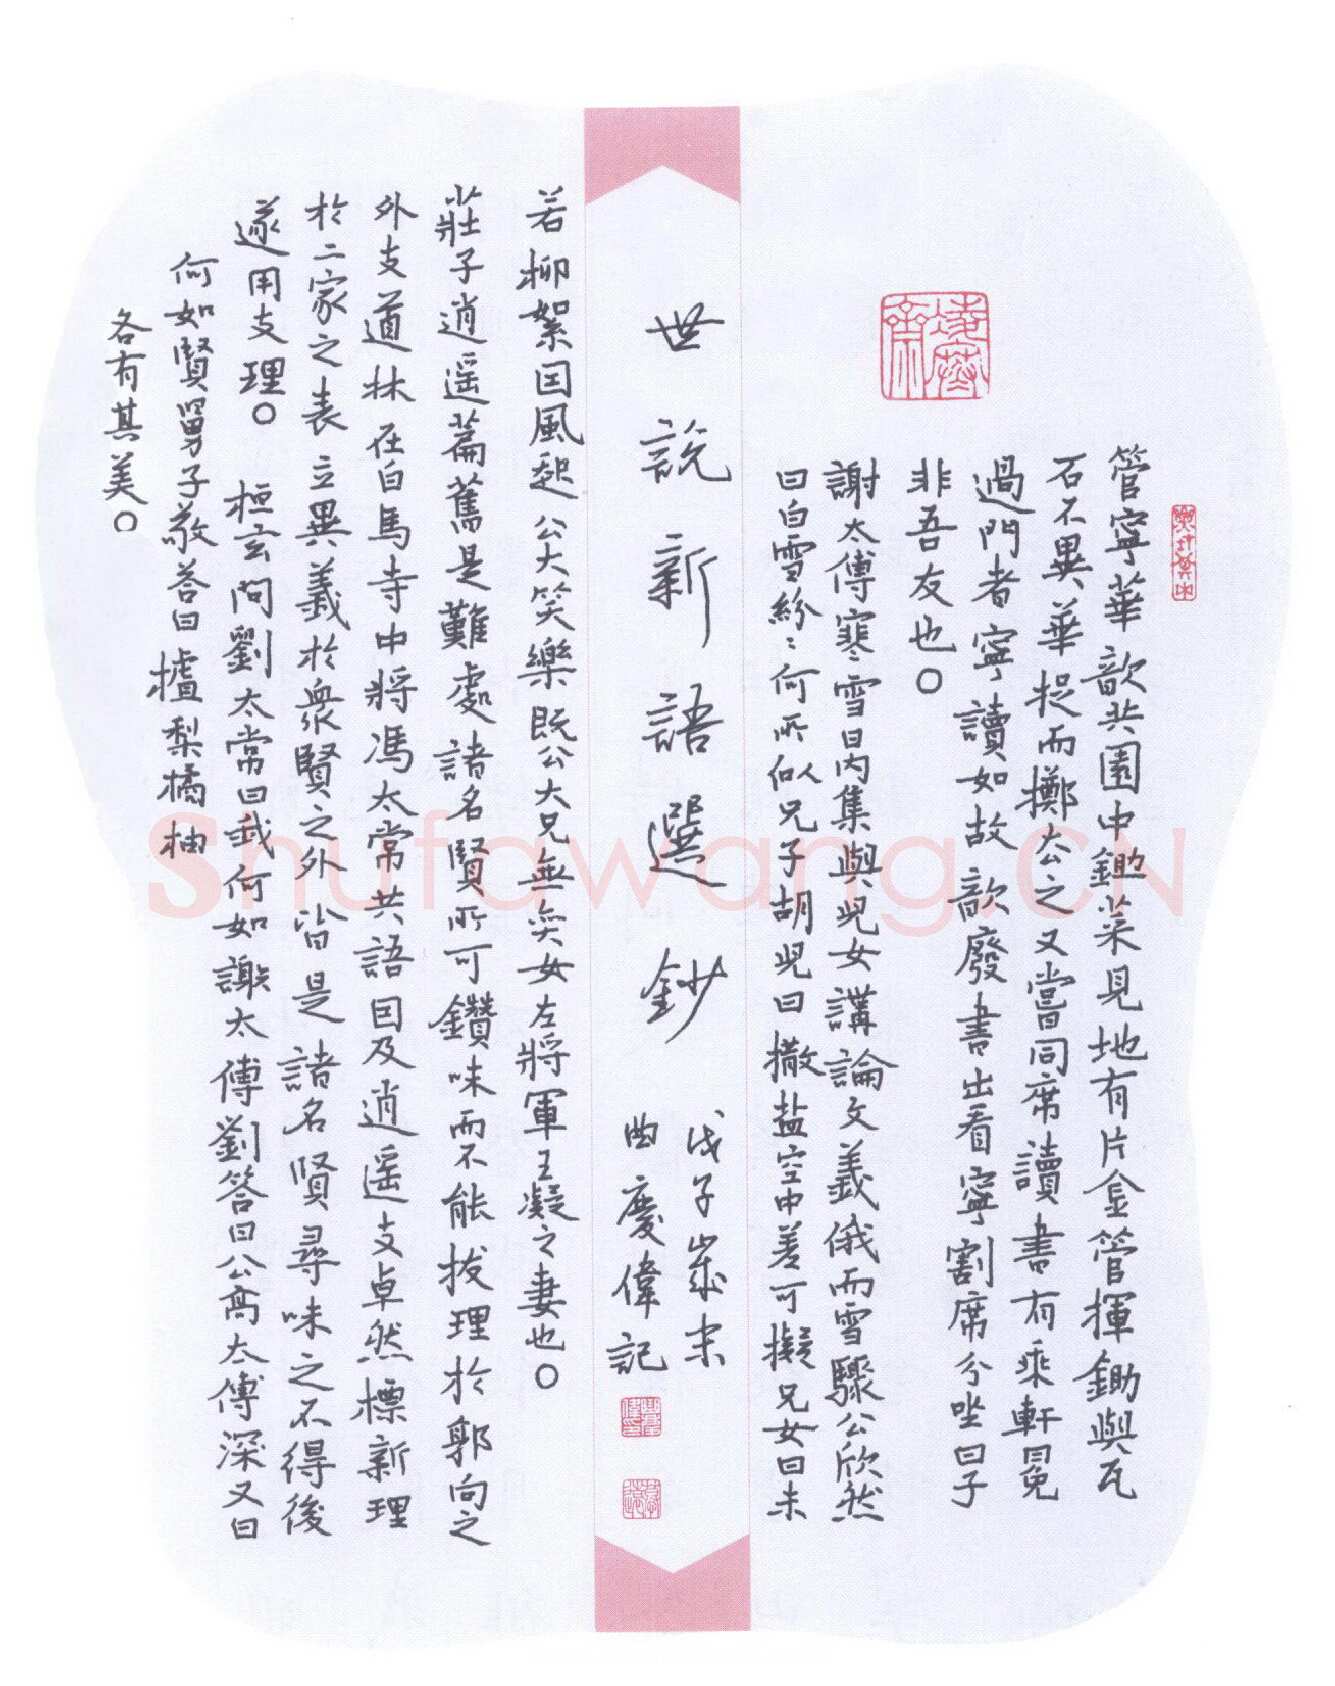 管寧華歆共園中鋤菜見地有片金管揮鋤與瓦
石不異華捉而擲去之又嘗同席讀書有乘軒冕
過門者寧讀如故歆廢書出看寧割席分坐曰子
非吾友也○
謝太傅寒雪日内集與児女講論文義俄而雪驟公欣然
曰白雪紛〻何所似兄子胡児曰撒盐空中差可擬兄女曰未
世說新語選鈔
戊子歲末
曲慶偉記
若柳絮因風起公大笑樂既公大兄無奕女左將軍王凝之妻也○
莊子逍遥篇舊是難處諸名賢所可鑽味而不能拔理於郭向之
外支道林在白馬寺中將馮太常共語因及逍遥支卓然標新理
於二家之表立異義於衆賢之外皆是諸名賢尋味之不得後
遂用支理○ 桓玄問劉太常曰我何如謝太傅劉答曰公高太傅深又曰
何如賢舅子敬荅曰樝梨橘柚
各有其美○
Shufawang.CN